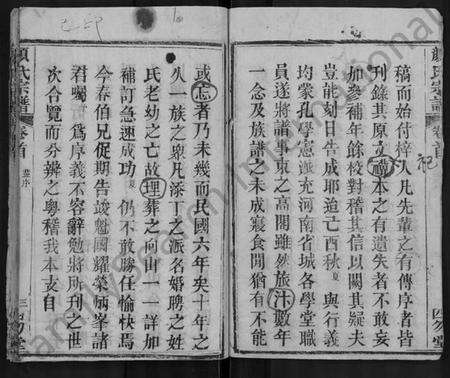 顏氏宗譜 卷首 四勿堂
稿而始付梓人凡先輩之有傳序者皆
刊錄其原文譜本之有遺失者不敢妄
加參補年餘校對稽其信以闕其疑夫
豈能刻日告成耶迨己酉秋夏與行義
均蒙孔學憲派充河南省城各學堂職
員遂將譜事束之高閣雖然旅汴數年
一念及族譜之未成寢食間猶有不能
或忘者乃未幾而民國六年矣十年之
久一族之眾凡添丁之派名婚聘之姓
氏老幼之亡故埋葬之向山一一詳加
補訂急速成功夏仍不敢勝任愉快焉
今春伯兄促期告竣魁國耀榮炳峯諸
君囑夏為序義不容辭勉將所刊之世
次合覽而分辨之粵稽我本支自
顏氏宗譜 卷首 老序 三 四勿堂